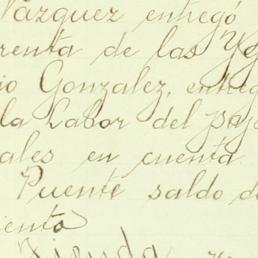 Vázquez entregó
renta de las Ye
io Gonzalez, entreg
la Labor del paj
ales en cuenta
Puente saldo d
iento
Tienda